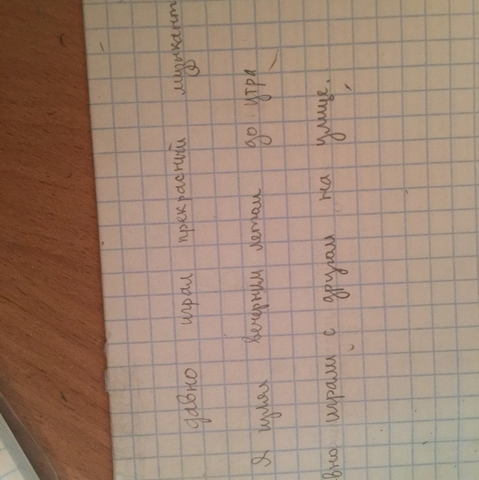 давно играл прекрасный музыкант
Я гулял вечерним летом до утра
вно играли с другом на улице.